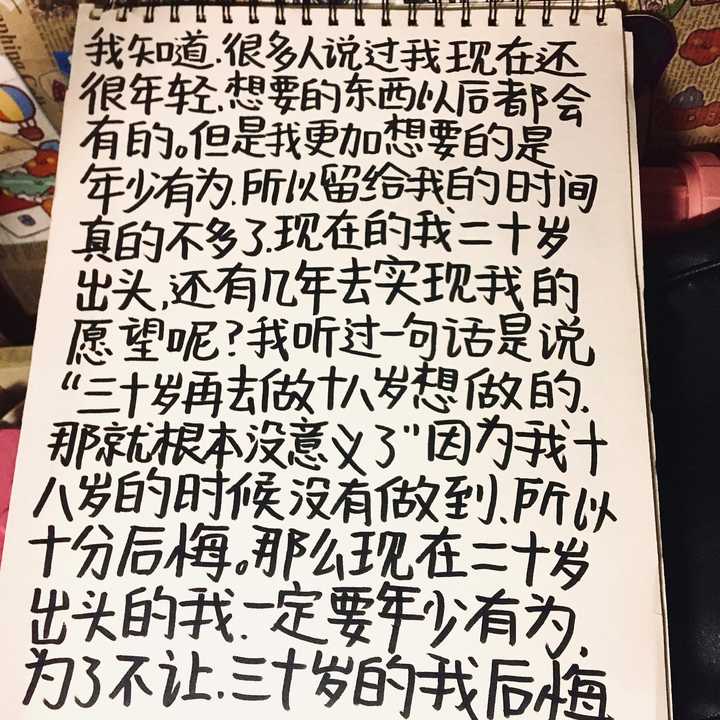 我知道.很多人说过我现在还
很年轻.想要的东西以后都会
有的。但是我更加想要的是
年少有为.所以留给我的时间
真的不多了.现在的我.二十岁
出头,还有几年去实现我的
愿望呢?我听过一句话是说
“三十岁再去做十八岁想做的.
那就根本没意义了”因为我十
八岁的时候没有做到.所以
十分后悔。那么现在二十岁
出头的我.一定要年少有为,
为了不让.三十岁的我后悔